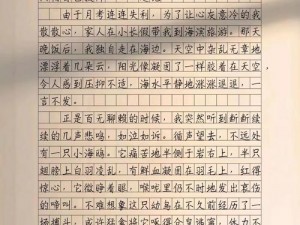 由于月考连连失利,为了让心灰意冷的我
散散心,家人在小长假带我到海滨旅游。那天
晚饭后,我独自走在海边。天空中杂乱无章地
漂浮着几朵云,阳光像凝固了一样胶着在天空,
令人感到压抑不适,海水平静地涨涨退退,一
言不发。
正是百无聊赖的时候,我突然听到断断续
续的几声悲鸣,如泣如诉。循声望去,不远处
有一只小海鸥。它痛苦地半侧于岩石上,半只
翅膀上白羽凌乱,有鲜血凝固在羽毛上,红得
惊心,它微睁着眼,喉咙里仍不时地发出哀伤
的啼叫。不难想象这只幼鸟在今天前经历了一
场搏斗,或许猛禽将它啄得全身透疼,体力不